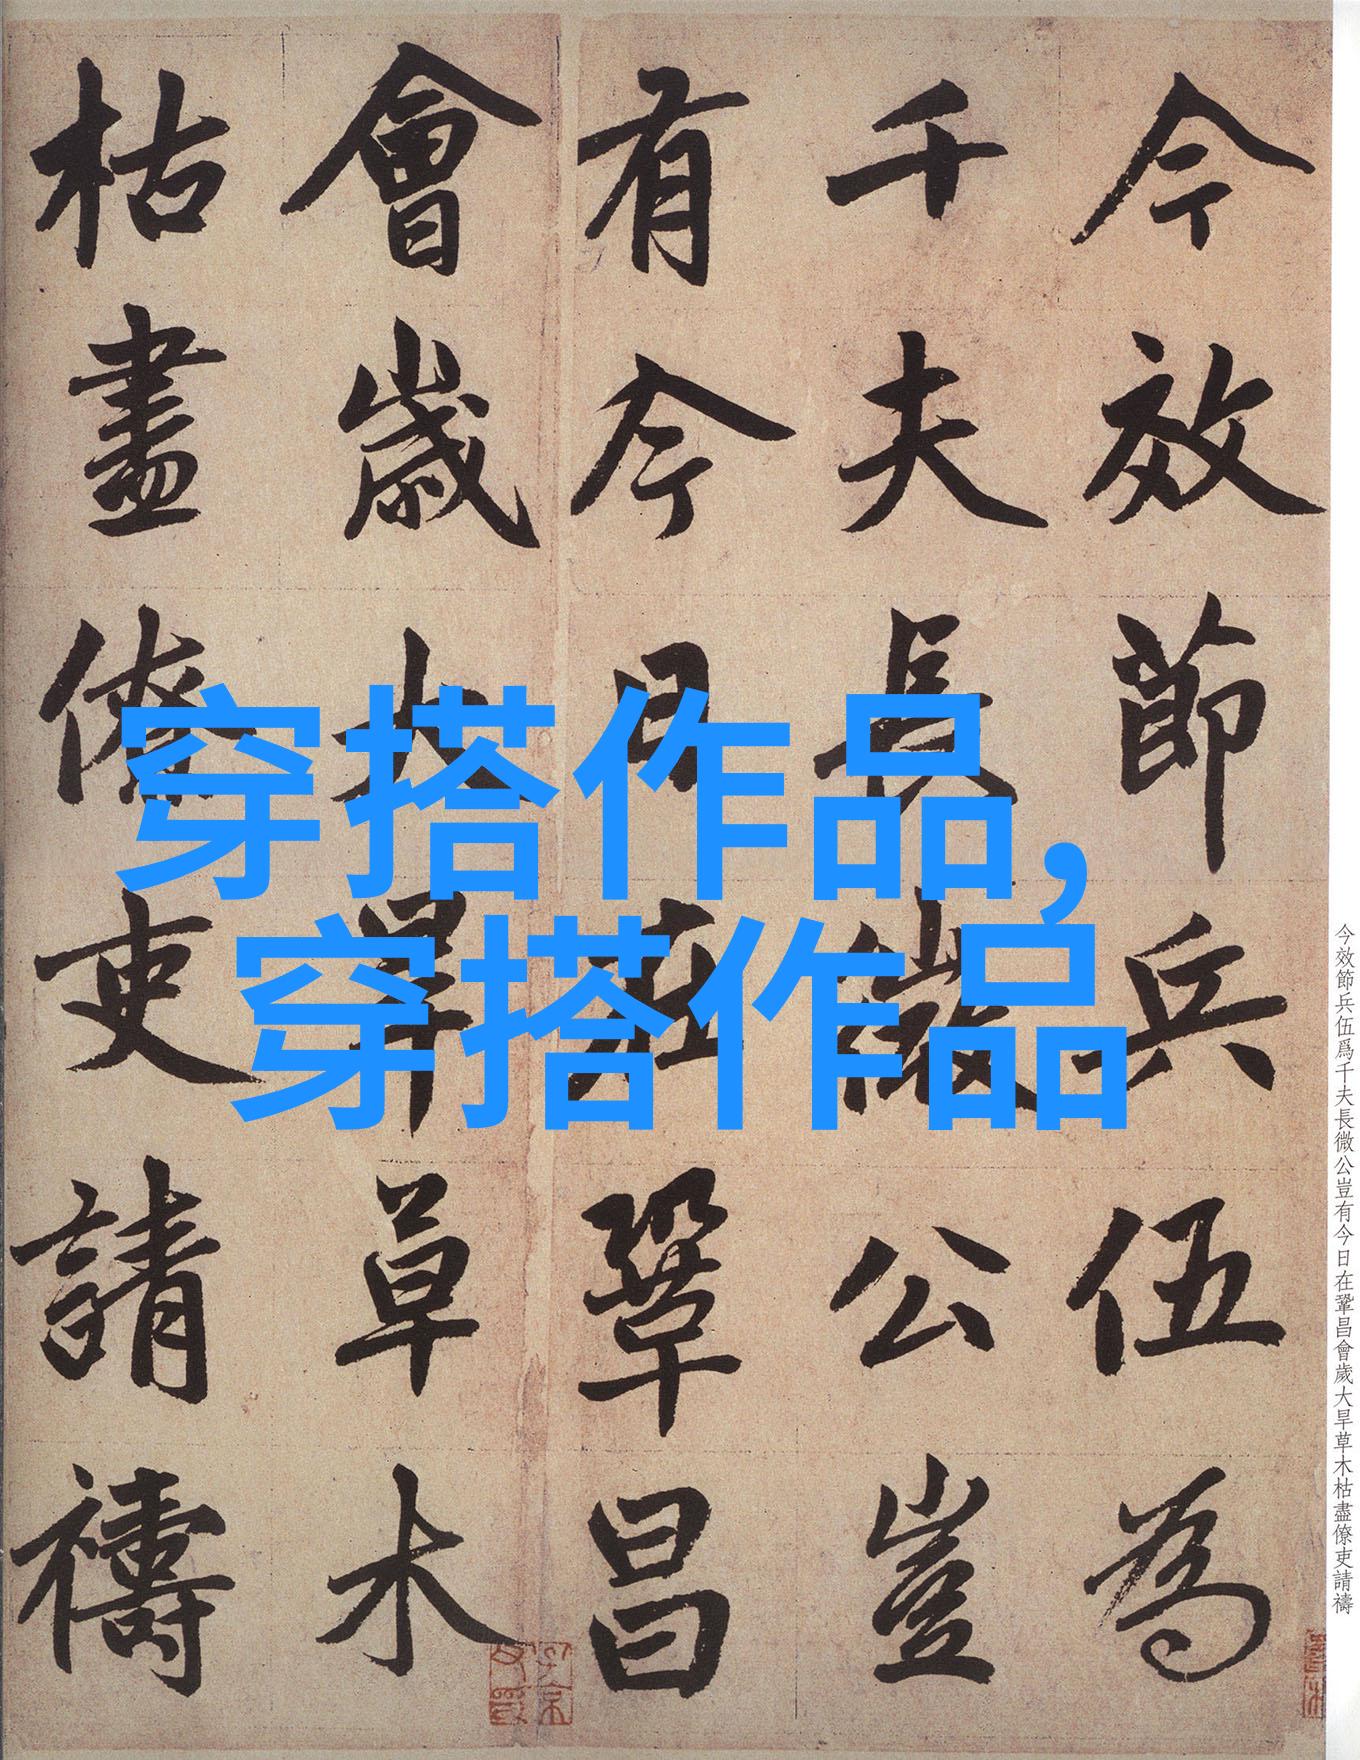 今效節兵伍為
千夫長微公豈
有今日在鞏昌
會歲大旱草木
枯盡僚吏請禱
穿搭作品,
穿搭作品
今效節兵伍爲千夫長微公豈有今日在鞏昌會歲大旱草木枯盡僚吏請禱